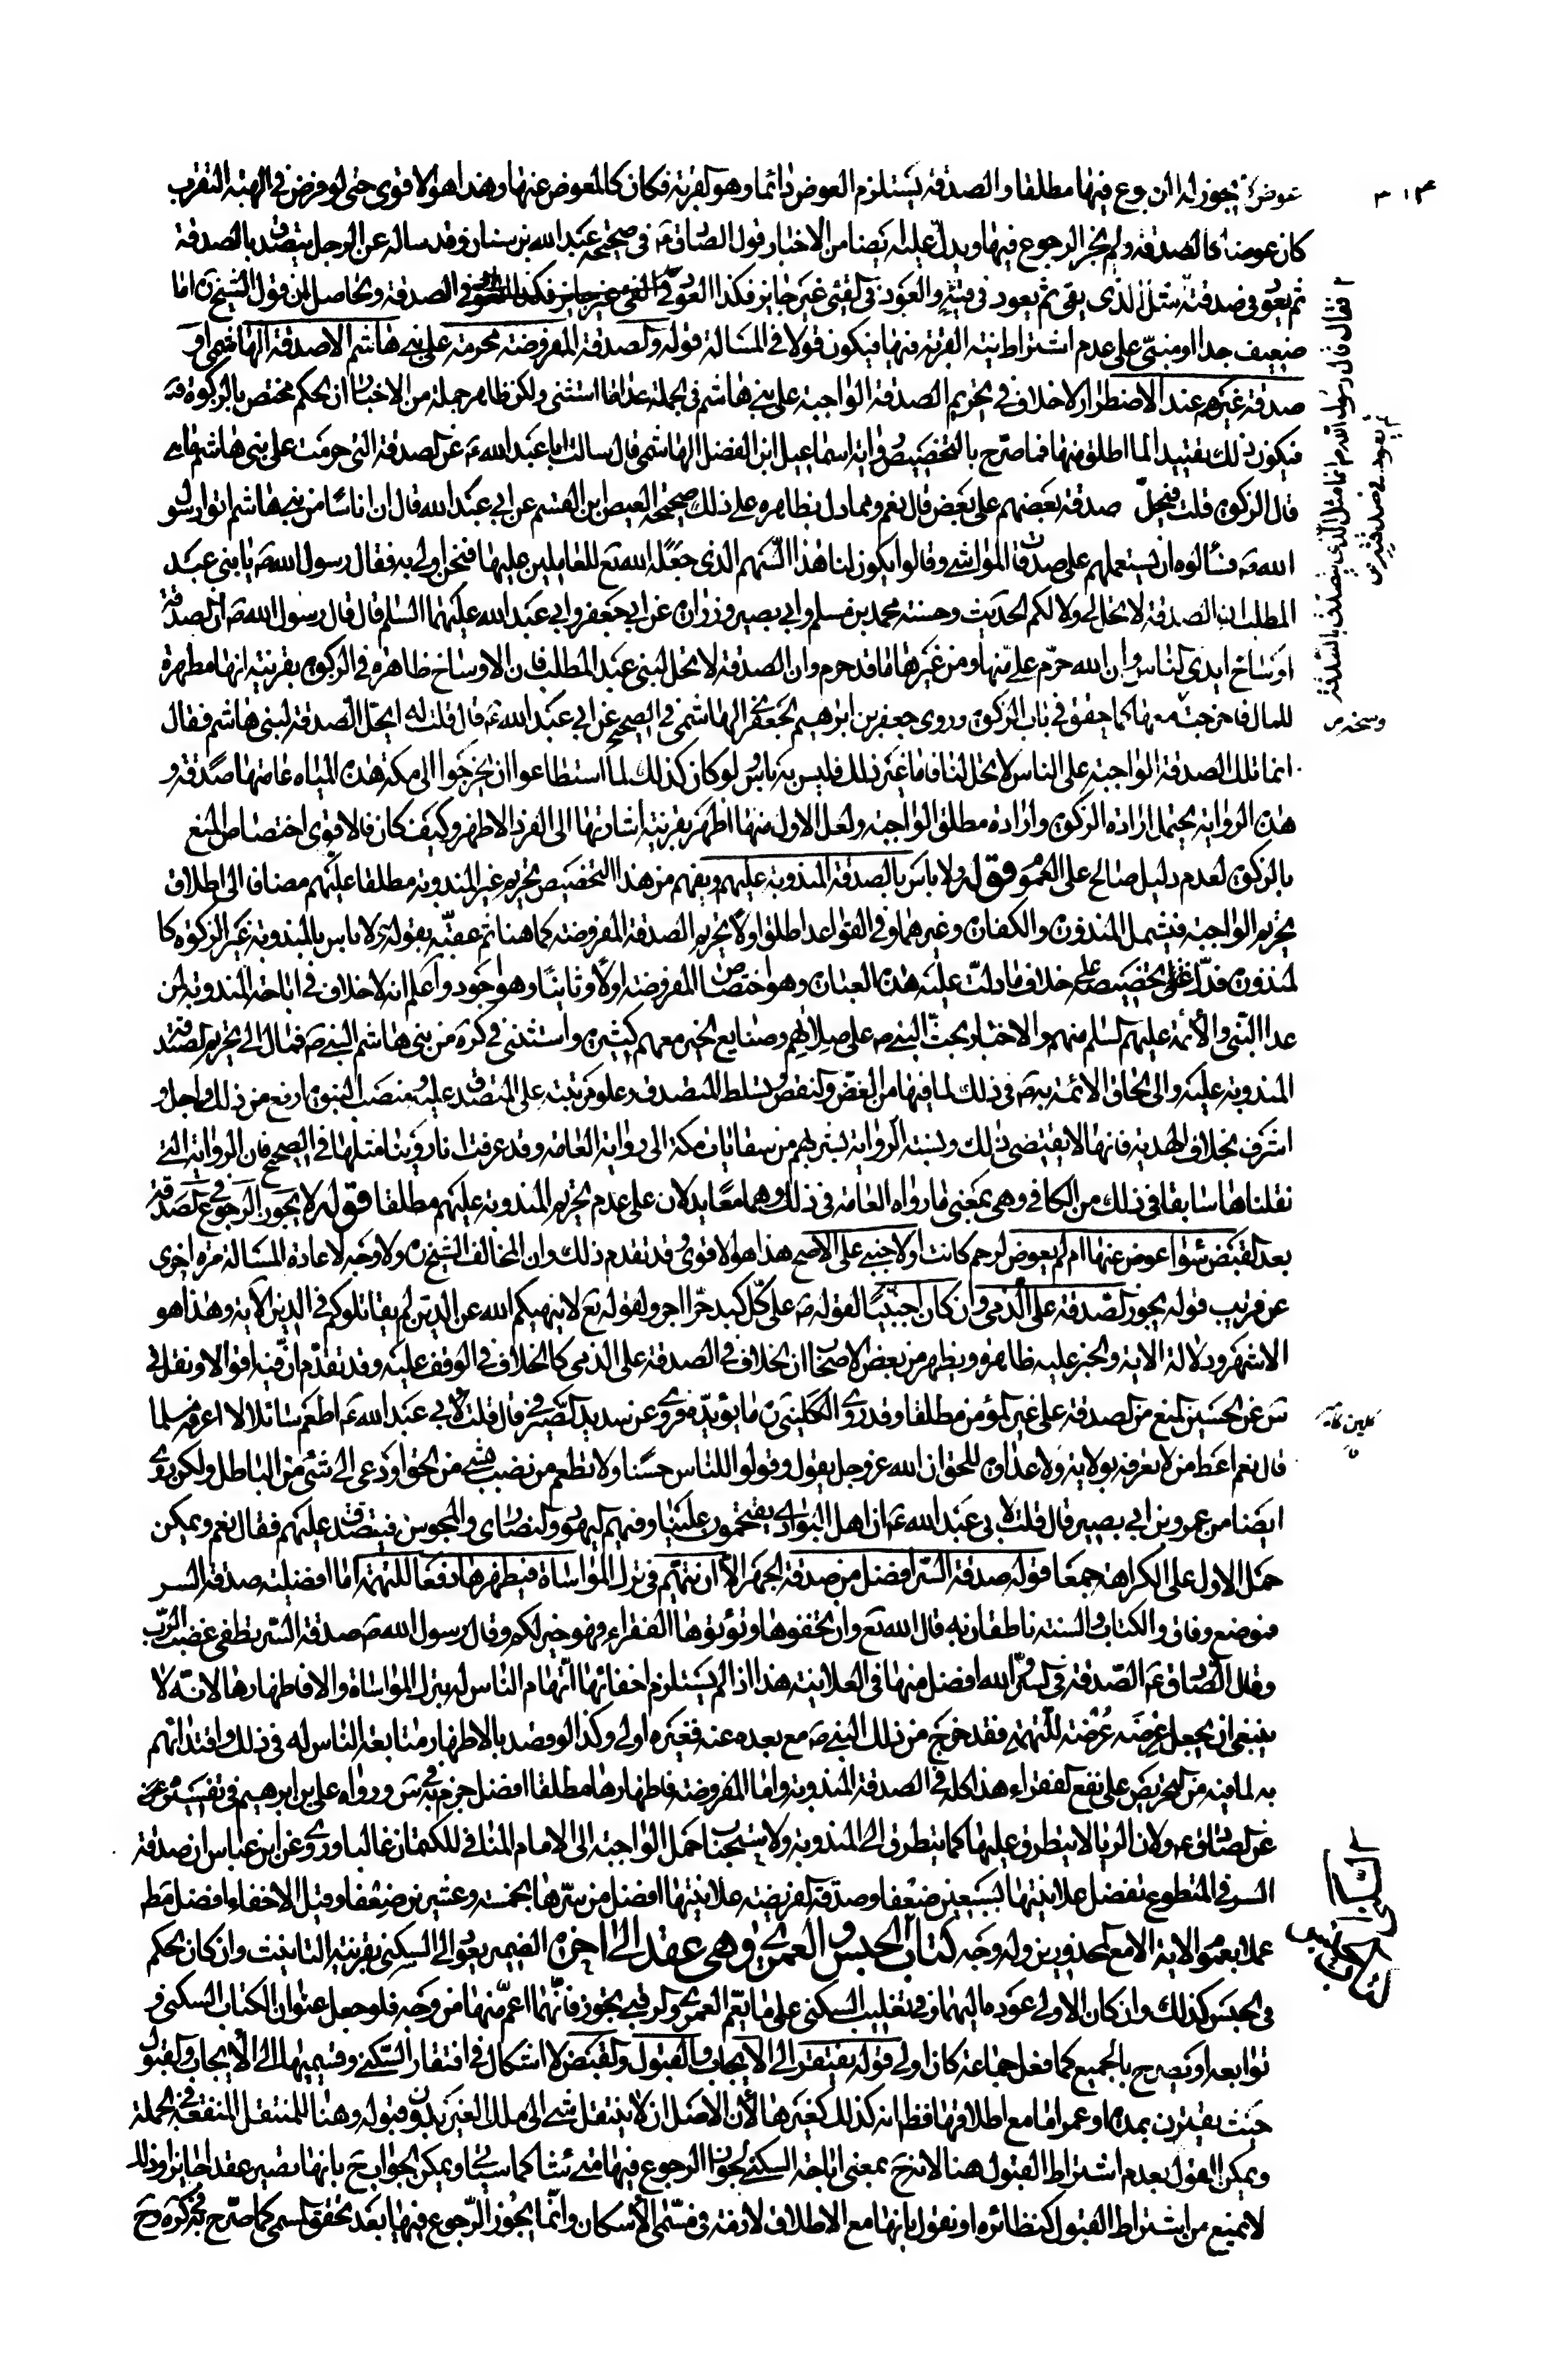 ٣١٣
عوض لم يجوز له الرجوع فيها مطلقا والصدقة يستلزم العوض دائما وهو القربة فكان كالمعوض عنها وهذا هو الاقوى حتى لو فرض في الهبة التقرب
كان عوضا كالصدقة ولم يجز الرجوع فيها ويدل عليه ايضا من الاخبار قول الصادق ع في صحيحة عبد الله بن سنان وقد ساله عن الرجل يتصدق بالصدقة
ثم يعود في صدقته مثل الذى يقئ ثم يعود في قيئه والعود في القئ غير جايز فكذا العود في الصدقة والحاصل ان قول الشيخ ره اما
ضعيف جدا او مبنى على عدم اشتراط نية القربة فيها فيكون قولا في المسالة قوله والصدقة المفروضة محرمة على بنى هاشم الا صدقة الهاشمى او
صدقة غيرهم عند الاضطرار لا خلاف في تحريم الصدقة الواجبة على بنى هاشم في الجملة عدا ما استثنى ولكن ظاهر جملة من الاخبار ان الحكم مختص بالزكوة فة
فيكون ذلك تقييدا لما اطلق منها فما صرح بالتخصيص رواية اسماعيل ابن الفضل الهاشمى قال سالت ابا عبد الله ع عن الصدقة التى حرمت على بنى هاشم ما هى
قال الزكوة قلت فتحل صدقة بعضهم على بعض قال نعم ومما دل بظاهره على ذلك صحيحة العيص ابن القسم عن ابى عبد الله قال ان اناسا من بنى هاشم اتوا رسول
الله ص فسألوه ان يستعملهم على صدقات المواشى وقالوا يكون لنا هذا السهم الذى جعله الله تع للعاملين عليها فنحن اولى به فقال رسول الله ص يا بنى عبد
المطلب ان الصدقة لا تحل لى ولا لكم الحديث وحسنة محمد بن مسلم وابى بصير وزرارة عن ابى جعفر وابى عبد الله عليهما السلم قال قال رسول الله ص ان الصدقة
اوساخ ايدى الناس وان الله حرم على منها ومن غيرها ما قد حرم وان الصدقة لا تحل لبنى عبد المطلب فان الاوساخ ظاهره في الزكوة بقرينة انها مطهرة
للمال فاخرجت معها كما حقق في باب الزكوة وروى جعفر بن ابرهيم الجعفرى الهاشمى في الصحيح عن ابى عبد الله ع قال قلت له ايحل الصدقة لبنى هاشم فقال
انما تلك الصدقة الواجبة على الناس لا تحل لنا فاما غير ذلك فليس به باس ولو كان كذلك لما استطاعوا ان يخرجوا الى مكة هذه المياه عامتها صدقة و
هذه الرواية يحتمل ارادة الزكوة وارادة مطلق الواجبة ولعل الاول منها اظهر بقرينة اشارتها الى الفرد الاظهر وكيف كان فالاقوى اختصاص المنع
بالزكوة لعدم دليل صالح على العموم قوله ولا باس بالصدقة المندوبة عليهم ويفهم من هذا التخصيص تحريم غير المندوبة مطلقا عليهم مضافا الى اطلاق
تحريم الواجبة فيشمل المنذورة والكفارة وغيرهما وفي القواعد اطلق اولا تحريم الصدقة المفروضة كما هنا ثم عقبه بقوله ولا باس بالمندوبة غير الزكوة كا
لمنذورة فدل على تخصيصه على خلاف ما دلت عليه هذه العبارة وهو اختصاص المفروضة اولا وثانيا وهو اجود واعلم انه لا خلاف في اباحة المندوبة لمن
عدا النبى والائمة عليهم السلم منهم والاخبار بحث النبى ص على صلاتهم وصنايع الخير معهم كثيرة واستثنى في كره من بنى هاشم النبى ص فمال الى تحريم الصدقة
المندوبة عليه والى الحاق الائمة به ص في ذلك لما فيها من الغض والنقص وتسلط المتصدق وعلو مرتبته على المتصدق عليه ومنصب النبوة ارفع من ذلك واجل و
اشرف بخلاف الهدية فانها لا يقتضى ذلك ونسبة الرواية بشربهم من سقايات مكة الى رواية العامة وقد عرفت انا روينا مثلها في الصحيح فان الرواية التى
نقلناها سابقا في ذلك من الكافى وهى بمعنى ما رواه العامة في ذلك وهما معا يدلان على عدم تحريم المندوبة عليهم مطلقا قوله لا يجوز الرجوع في الصدقة
بعد القبض سواء عوض عنها ام لم يعوض لرحم كانت او لاجنبى على الاصح هذا هو الاقوى وقد تقدم ذلك وان المخالف الشيخ ره ولا وجه لاعادة المسالة مرة اخرى
عن قريب قوله يجوز الصدقة على الذمى وان كان اجنبيا لقوله ص على كل كبد حرا اجر ولقوله تع لا ينهيكم الله عن الذين لم يقاتلوكم في الدين الاية وهذا هو
الاشهر ودلالة الاية والخبر عليه ظاهره ويظهر من بعض الاصحاب ان الخلاف في الصدقة على الذمى كالخلاف في الوقف عليه وقد تقدم ان فيه اقوالا ونقل في
س عن الحسين المنع من الصدقة على غير المؤمن مطلقا وقد روى الكلينى ره ما يؤيده فروى عن سدير الصيرفى قال قلت لابى عبد الله ع اطعم سائلا لا اعرفه مسلما
قال نعم اعط من لا تعرفه بولاية ولا عداوة للحق ان الله عز وجل يقول وقولوا للناس حسنا ولا تطعم من نصب لشئ من الحق او دعى الى شئ من الباطل ولكن روى
ايضا من عمرو بن ابى بصير قال قلت لابى عبد الله ع ان اهل البوادى يقتحمون علينا وفيهم اليهود والنصارى والمجوس فنتصدق عليهم فقال نعم ويمكن
حمل الاول على الكراهة جمعا قوله صدقة السر افضل من صدقة الجهر الا ان يتهم في ترك المواساة فيظهرها دفعا للتهمة اما افضلية صدقة السر
فموضع وفاق والكتاب والسنة ناطقان به قال الله تع وان تخفوها وتؤتوها الفقراء فهو خير لكم وقال رسول الله ص صدقة السر تطفى غضب الرب
وقال الصادق ع الصدقة في السر والله افضل منها في العلانية هذا اذا لم يستلزم اخفائها اتهام الناس له بترك المواساة والا فاظهارها لانه لا
ينبغى ان يجعل عرضه عرضة للتهمة فقد خرج من ذلك النبى ص مع بعده عنه فغيره اولى وكذا لو قصد بالاظهار متابعة الناس له في ذلك واقتدائهم
به لما فيه من التحريض على نفع الفقراء هذا كله في الصدقة المندوبة واما المفروضة فاظهارها مطلقا افضل جزم به في س ورواه على بن ابرهيم في تفسيره
عن الصادق ع ولان الريا لا يتطرق عليها كما يتطرق الى المندوبة ولاستحبابنا حمل الواجبة الى الامام المنافى للكتمان غالبا وروى عن ابن عباس ان صدقة
السر في التطوع تفضل علانيتها بسبعين ضعفا وصدقة الفريضة علانيتها افضل من سرها بخمسة وعشرين ضعفا وقيل الاخفاء افضل مط
عملا بعموم الاية الا مع المحذورين وله وجه كتاب الحبس والعمرى وهى عقد الى اخره الضمير يعود الى السكنى بقرينة التانيث وان كان الحكم
في الحبس كذلك وان كان الاولى عوده اليهما وفي تغليب السكنى على ما يعم العمرى والرقبى تجوز فانهما اعم منها من وجه فلو جعل عنوان الكتاب السكنى و
توابعه او يصرح بالجميع كما فعل جماعة كان اولى قوله يفتقر الى الايجاب والقبول والقبض لا اشكال في افتقار السكنى وقسيميها الى الايجاب والقبول
حيث يقترن بمدة او عمر اما مع اطلاقها فظ انه كذلك كغيرها لان الاصل ان لا ينتقل شئ الى ملك الغير بدون قبوله وهنا المنتقل المنفعة في الجملة
ويمكن القول بعدم اشتراط القبول هنا لانه ح بمعنى اباحة السكنى لجواز الرجوع فيها متى شئنا كما سيأتى ويمكن الجواب ح بانها تصير عقدا جايزا وذلك
لا يمنع من اشتراط القبول كنظائره او نقول بانها مع الاطلاق لازمة في مسمى الاسكان وانما يجوز الرجوع فيها بعد تحقق المسمى كما صرح به في كره وح
قال قال رسول الله ص انما مثل الذى يتصدق بالصدقة
ثم يعود في صدقته
كتاب السكنى والحبس